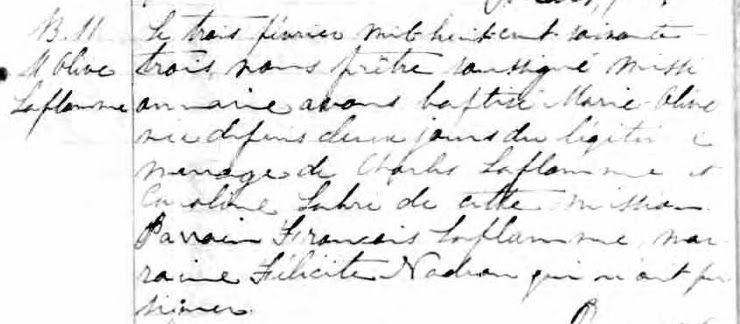 B. 11
M Olive
Laflamme
Le trois février mil huit cent soixante
trois, nous prêtre soussigné missi
onnaire avons baptisé Marie-Olive
née depuis deux jours du légiti
mariage de Charles Laflamme et
Caroline Labri de cette mission
Parrain François Laflamme, mar
raine Félicité Nadeau qui n'ont pu
signer.